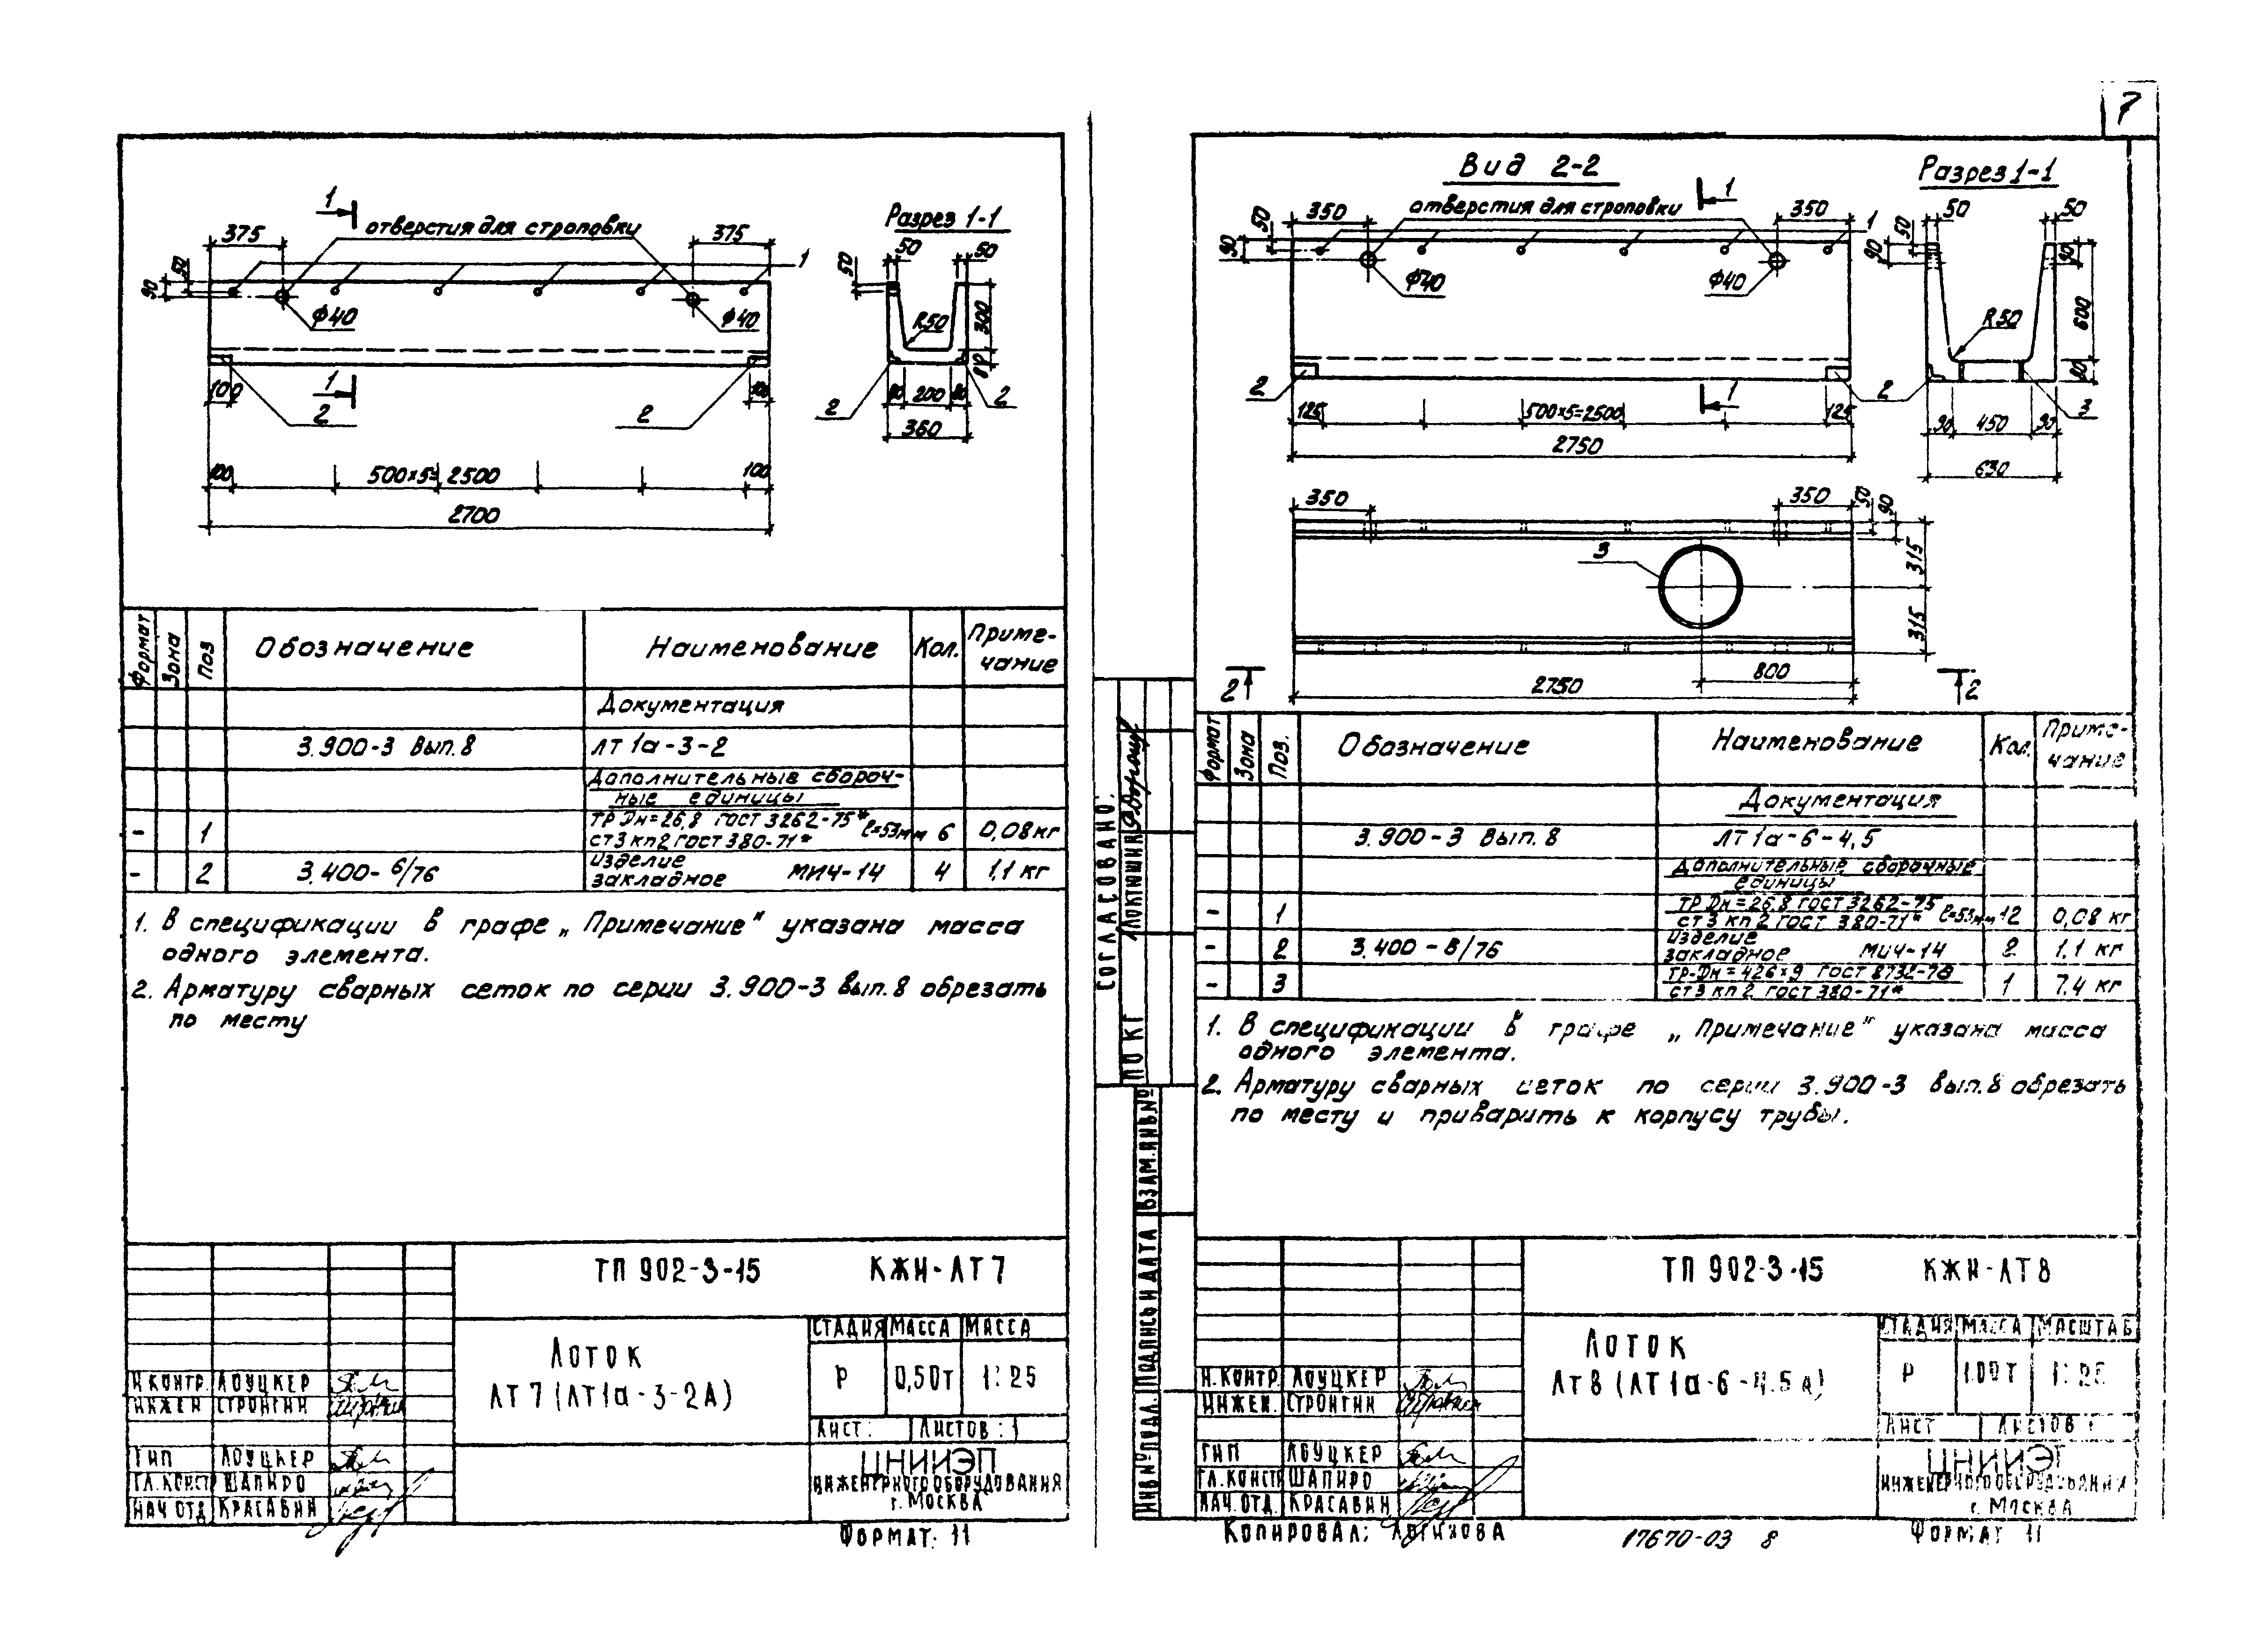 7
1
отверстия для строповки
Разрез 1-1
375
375
50
90
1
50
50
50
ф40
ф40
R50
300
80
100
1
100
2
2
2
2
80
200
80
360
100
500×5=2500
100
2700
Формат
Зона
Поз
Обозначение
Наименование
Кол.
Приме-
чание
Документация
3.900-3 Вып.8
ЛТ 1а-3-2
Дополнительные сбороч-
ные единицы
-
1
ТР Дн=26,8 ГОСТ 3262-75*
Ст3 кп2 ГОСТ 380-71*
ℓ=53мм
6
0,08кг
-
2
3.400-6/76
Изделие
закладное
МИЧ-14
4
1.1 кг
1. В спецификации в графе „Примечание" указана масса
одного элемента.
2. Арматуру сварных сеток по серии 3.900-3 Вып.8 обрезать
по месту
ТП 902-3-15
КЖИ-ЛТ7
Лоток
ЛТ7(ЛТ1а-3-2А)
СТАДИЯ
МАССА
МАССА
Р
0,50т
1:25
Лист:
Листов:1
ЦНИИЭП
ИНЖЕНЕРНОГО ОБОРУДОВАНИЯ
г. МОСКВА
Н.КОНТР.
ЛОУЦКЕР
ИНЖЕН
СТРОНГИН
ГИП
ЛОУЦКЕР
ГЛ.КОНСТР
ШАПИРО
НАЧ ОТД
КРАСАВИН
ФОРМАТ: 11
Вид 2-2
Разрез 1-1
1
отверстия для строповки
350
350
50
90
1
50
50
50
90
90
ф40
ф40
R50
600
80
2
2
1
3
125
500×5=2500
125
2750
90
450
90
630
350
350
50
90
3
315
315
2
800
2750
2
Формат
Зона
Поз.
Обозначение
Наименование
Кол.
Приме-
чание
Документация
3.900-3 Вып.8
ЛТ 1а-6-4,5
Дополнительные сборочные
единицы
-
1
ТР Дн=26,8 ГОСТ 3262-75
Ст3 кп2 ГОСТ 380-71*
ℓ=53мм
12
0,08 кг
-
2
3.400-6/76
Изделие
закладное
МИЧ-14
2
1.1 кг
-
3
ТР-Дн=426×9 ГОСТ 8732-78
Ст3 кп2 ГОСТ 380-71*
1
7.4 кг
1. В спецификации в графе „Примечание" указана масса
одного элемента.
2. Арматуру сварных сеток по серии 3.900-3 Вып.8 обрезать
по месту и приварить к корпусу трубы.
СОГЛАСОВАНО:
ПОКГ
ВЗАМ.ИНВ.№
ПОДПИСЬ И ДАТА
ИНВ.№ ПОДЛ.
ТП 902-3-15
КЖИ-ЛТ8
Лоток
ЛТ8(ЛТ1а-6-4.5А)
СТАДИЯ
МАССА
МАСШТАБ
Р
1.00т
1:25
Лист
Листов 1
ЦНИИЭП
ИНЖЕНЕРНОГО ОБОРУДОВАНИЯ
г. МОСКВА
Н.КОНТР.
ЛОУЦКЕР
ИНЖЕН.
СТРОНГИН
ГИП
ЛОУЦКЕР
ГЛ.КОНСТР
ШАПИРО
НАЧ.ОТД.
КРАСАВИН
КОПИРОВАЛ:
17670-03 8
ФОРМАТ 11